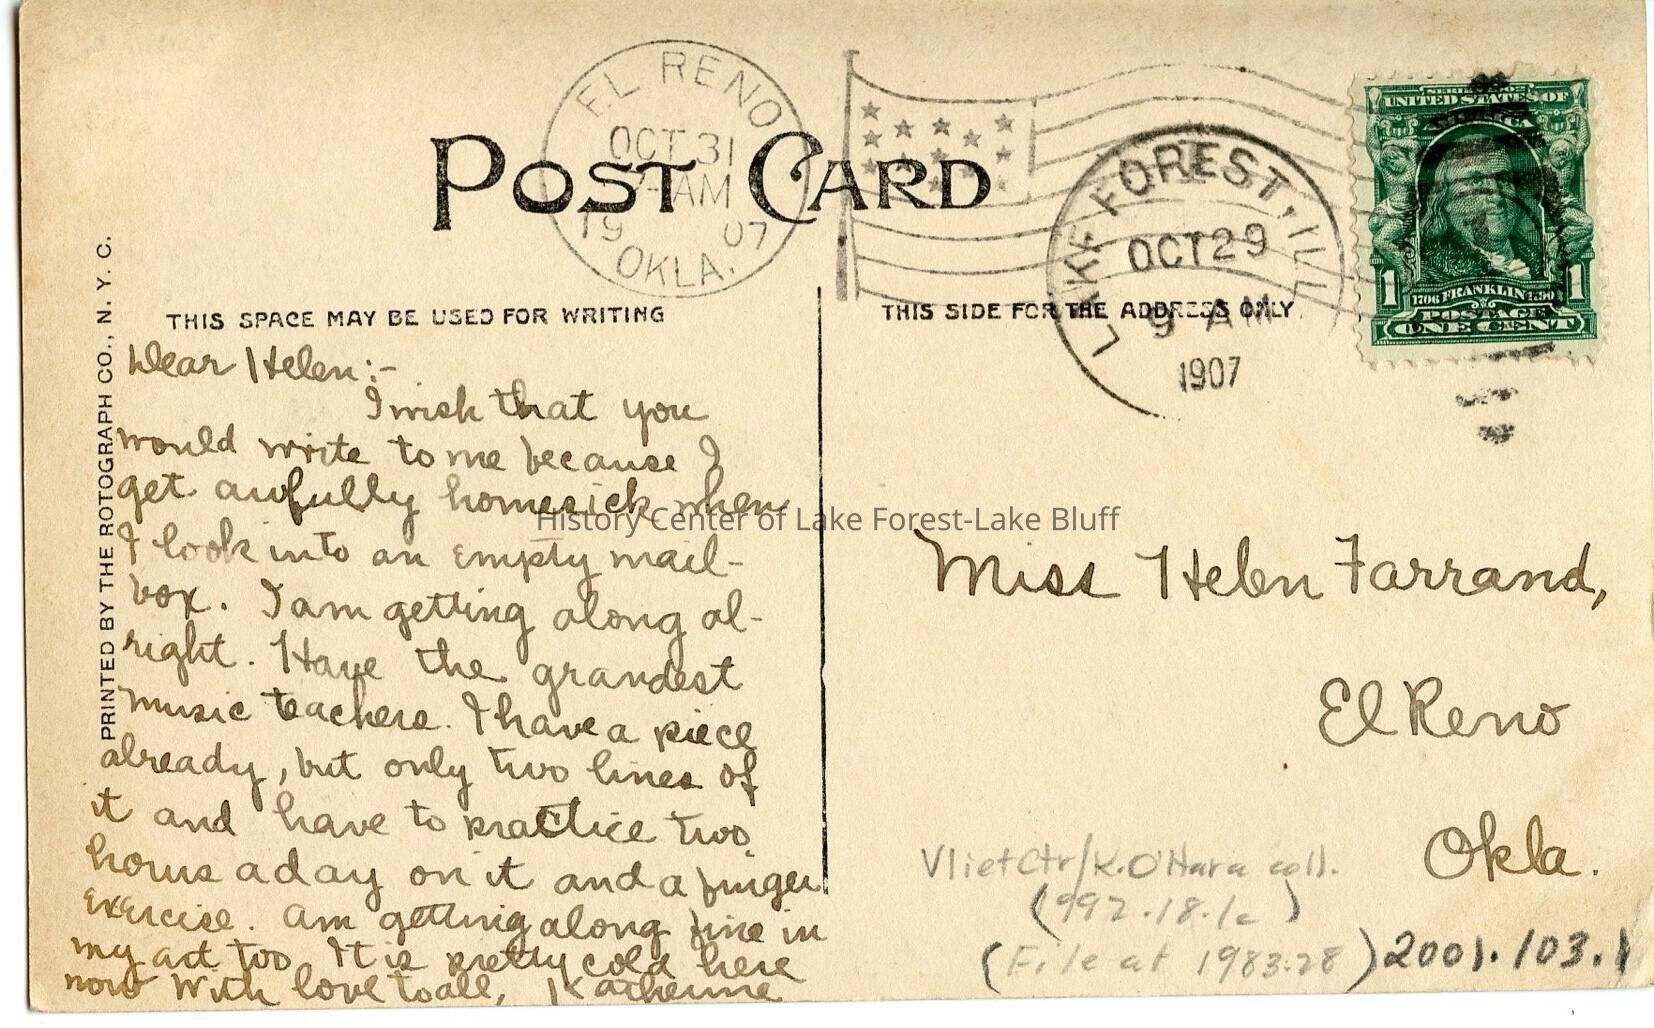 EL RENO
OCT 31
AM
19 07
OKLA.
POST CARD
LAKE FOREST, ILL.
OCT 29
9 AM
1907
UNITED STATES OF
AMERICA
1 1
1706 FRANKLIN 1790
POSTAGE
ONE CENT
THIS SPACE MAY BE USED FOR WRITING
THIS SIDE FOR THE ADDRESS ONLY
PRINTED BY THE ROTOGRAPH CO., N. Y. C.
Dear Helen:-
I wish that you
would write to me because I
get awfully homesick when
I look into an empty mail-
box. I am getting along al-
right. Have the grandest
music teachers. I have a piece
already, but only two lines of
it and have to practice two
hours a day on it and a finger
exercise. am getting along fine in
my art too. It is pretty cold here
now With love to all, Katherine
History Center of Lake Forest-Lake Bluff
Miss Helen Farrand,
El Reno
Okla.
Vliet Ctr/K.O'Hara coll.
(1992.18.1c)
(File at 1983.28) 2001.103.1